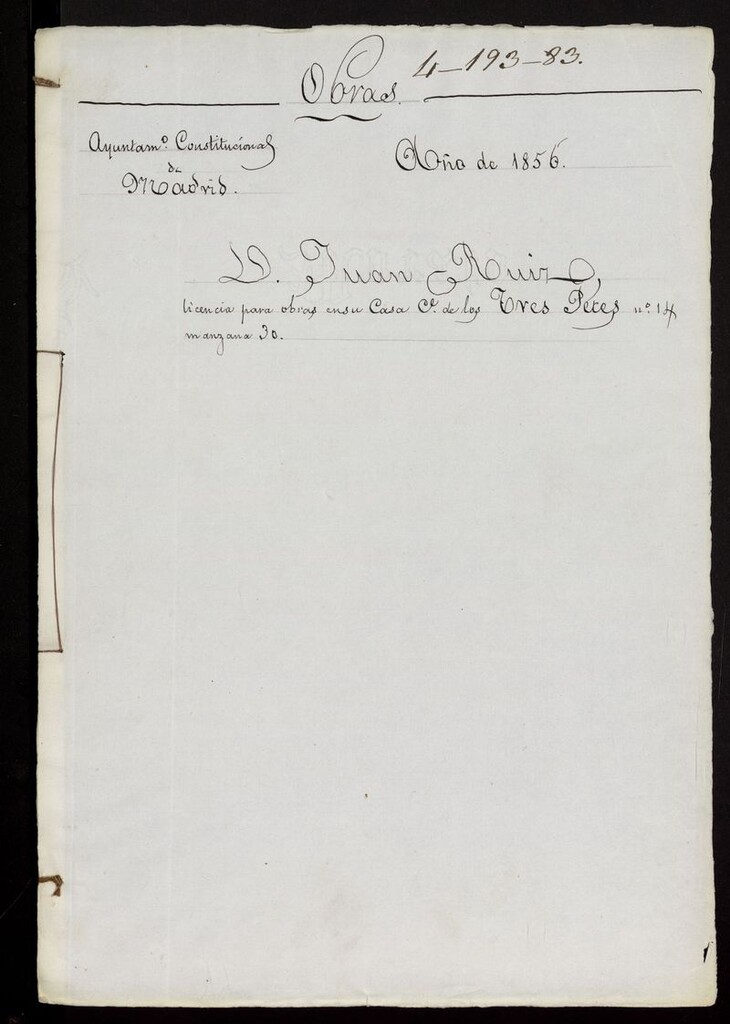 4-193-83.
Obras.
Ayuntam.º Constitucional
de
Madrid.
Año de 1856.
D. Juan Ruiz,
licencia para obras en su Casa C.ª de los Tres Peces n.º 14
manzana 30.